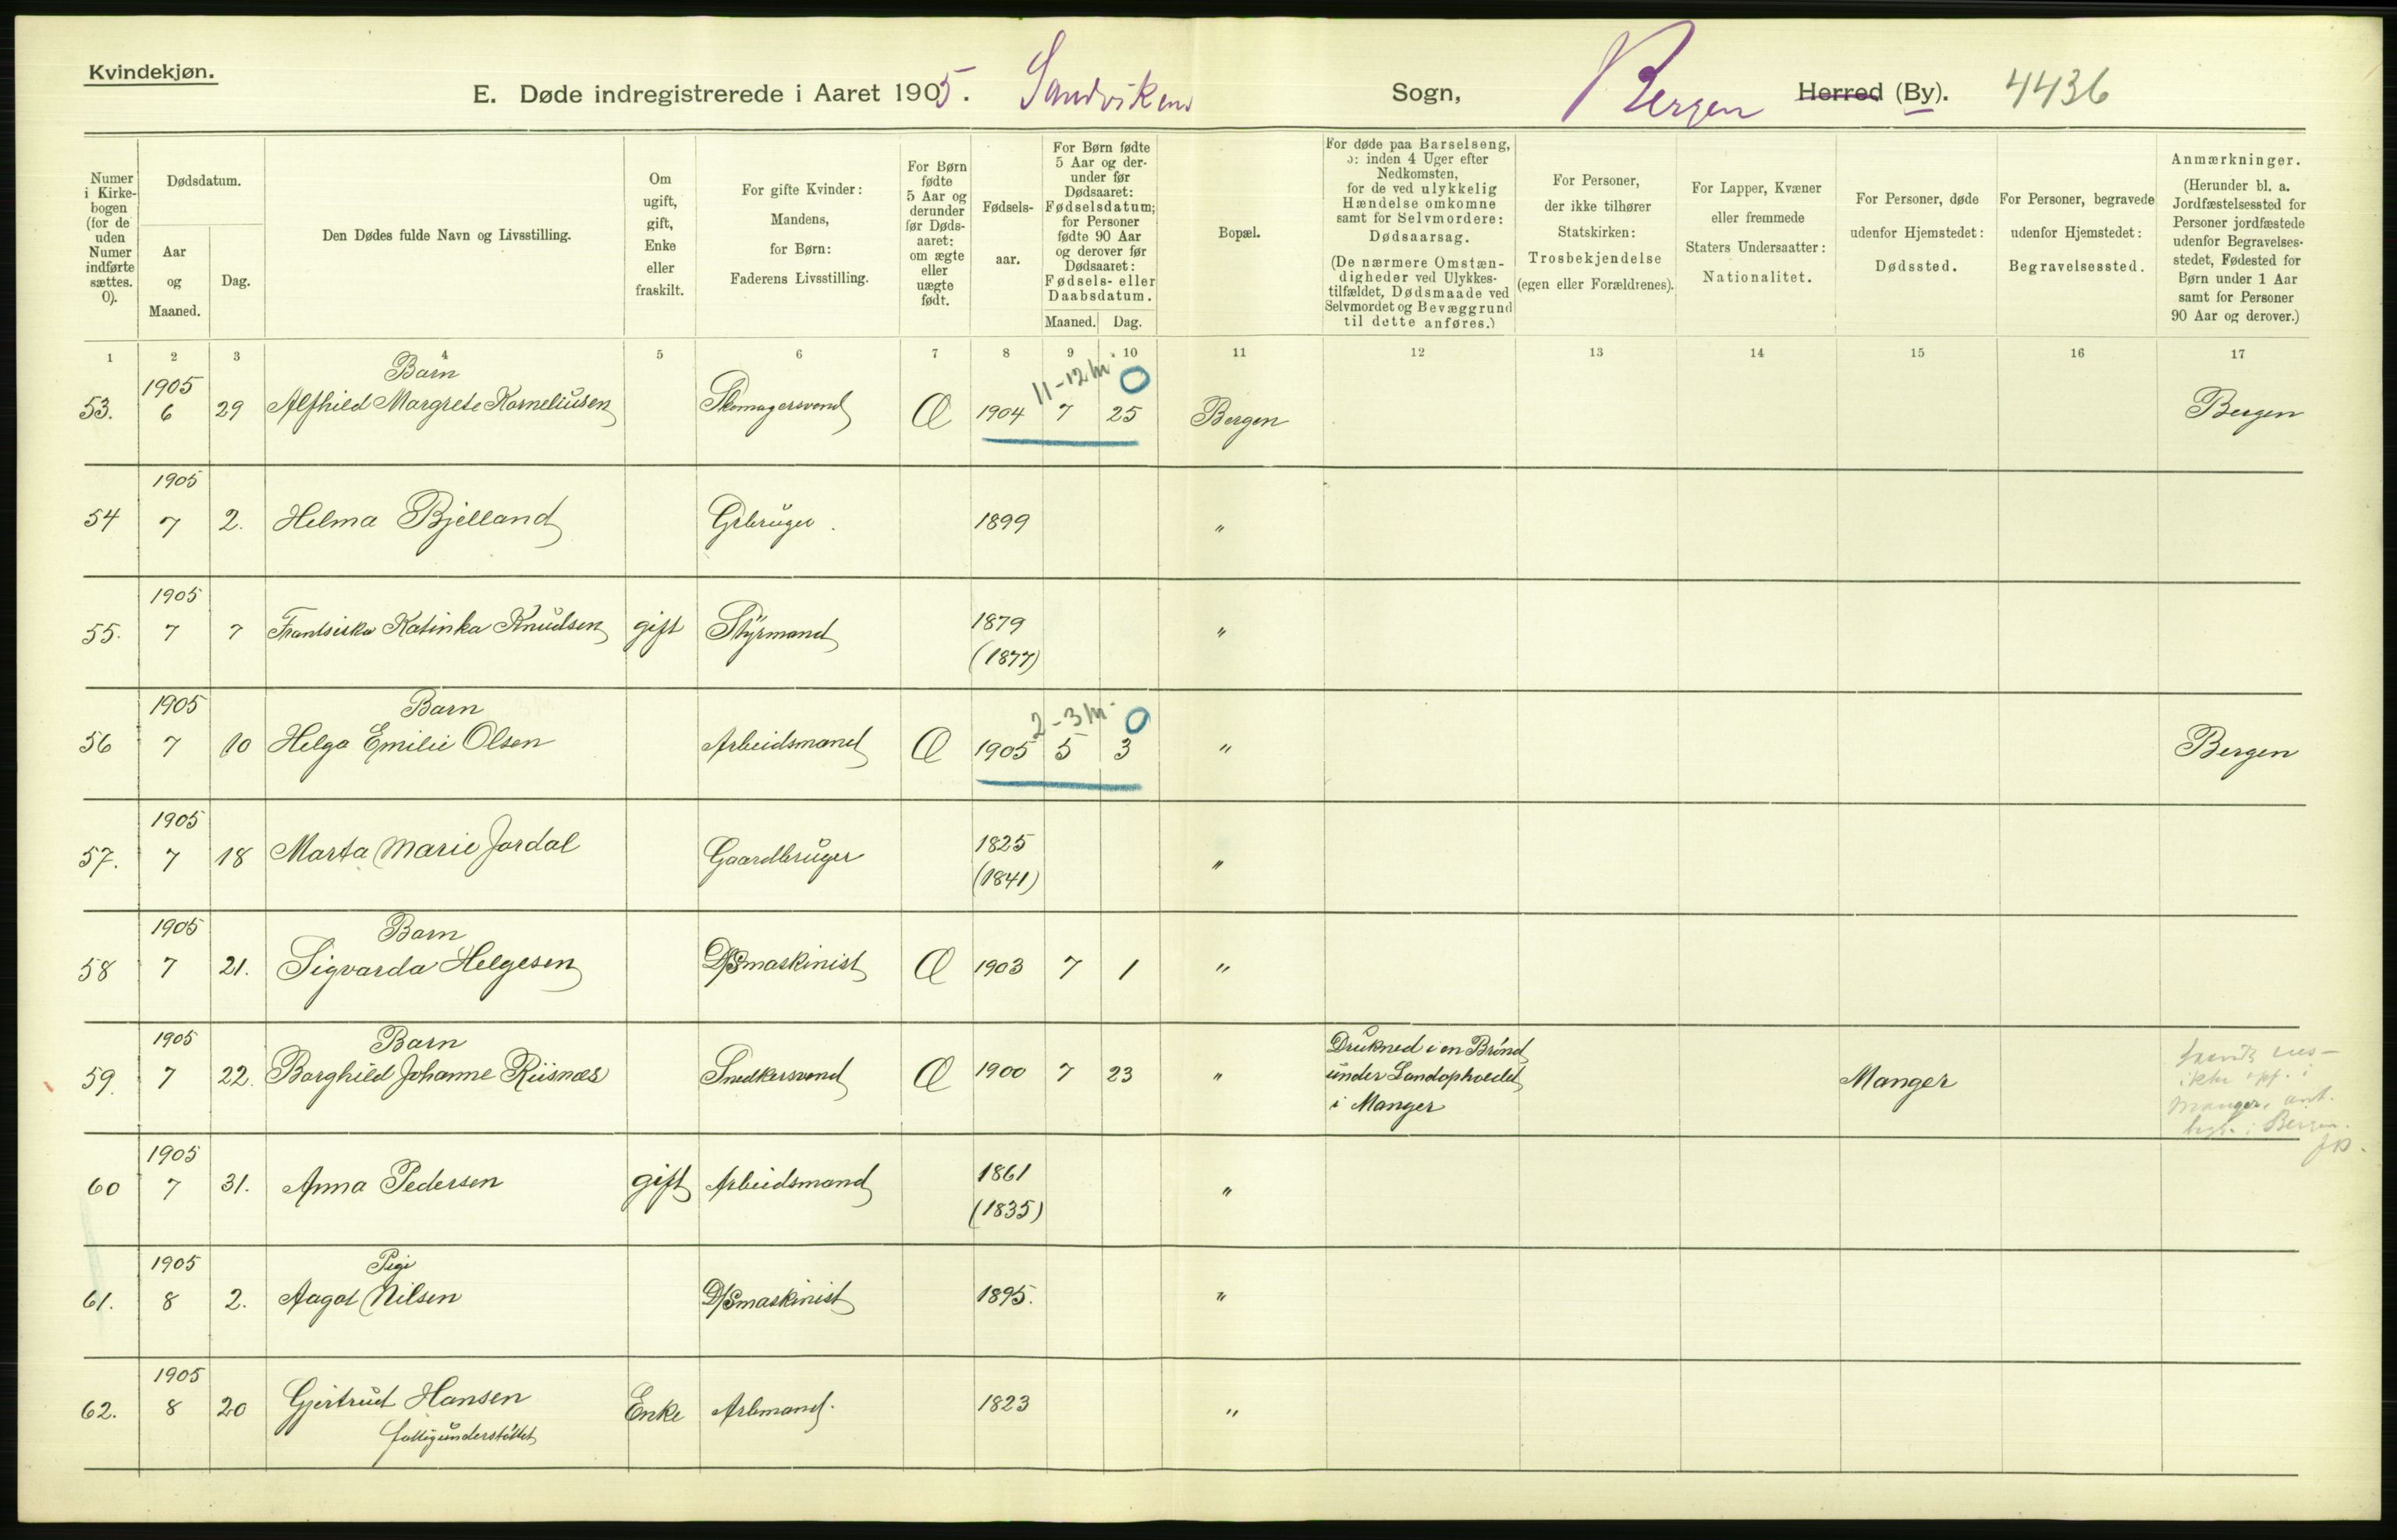 Kvindekjøn.
E. Døde indregistrerede i Aaret 1905. Sandvikens Sogn, Bergen Herred (By). 4436
Numer
i Kirke-
bogen
(for de
uden
Numer
indførte
sættes.
0).
Dødsdatum.
Aar
og
Maaned.
Dag.
Den Dødes fulde Navn og Livsstilling.
Om
ugift,
gift,
Enke
eller
fraskilt.
For gifte Kvinder:
Mandens,
for Børn:
Faderens Livsstilling.
For Børn
fødte
5 Aar og
derunder
før Døds-
aaret:
om ægte
eller
uægte
født.
Fødsels-
aar.
For Børn fødte
5 Aar og der-
under før
Dødsaaret:
Fødselsdatum;
for Personer
fødte 90 Aar
og derover før
Dødsaaret:
Fødsels- eller
Daabsdatum.
Maaned. Dag.
Bopæl.
For døde paa Barselseng,
ɔ: inden 4 Uger efter
Nedkomsten,
for de ved ulykkelig
Hændelse omkomne
samt for Selvmordere:
Dødsaarsag.
(De nærmere Omstæn-
digheder ved Ulykkes-
tilfældet, Dødsmaade ved
Selvmordet og Bevæggrund
til dette anføres.)
For Personer,
der ikke tilhører
Statskirken:
Trosbekjendelse
(egen eller Forældrenes).
For Lapper, Kvæner
eller fremmede
Staters Undersaatter:
Nationalitet.
For Personer, døde
udenfor Hjemstedet:
Dødssted.
For Personer, begravede
udenfor Hjemstedet:
Begravelsessted.
Anmærkninger.
(Herunder bl. a.
Jordfæstelsessted for
Personer jordfæstede
udenfor Begravelses-
stedet, Fødested for
Børn under 1 Aar
samt for Personer
90 Aar og derover.)
1 2 3 4 5 6 7 8 9 10 11 12 13 14 15 16 17
1905 Barn 11-12 m 0
53. 6 29 Alfhild Margrete Korneliusen Skomagersvend Æ 1904 7 25 Bergen Bergen
1905
54 7 2. Helma Bjelland Gbruger. 1899 "
1905
55. 7 7 Frantsiska Katinka Knudsen gift Styrmand 1879 "
(1877)
1905 Barn 2-3 m. 0
56 7 10 Helga Emilie Olsen Arbeidsmand Æ 1905 5 3 " Bergen
1905
57. 7 18 Marta Marie Jordal Gaardbruger 1825 "
(1841)
1905 Barn
58 7 21. Sigvarda Helgesen D/Smaskinist Æ 1903 7 1 "
1905 Barn Drukned i en Brønd
59. 7 22. Borghild Johanne Riisnæs Snedkersvend Æ 1900 7 23 " under Landopholdet Manger
i Manger
ikke opf. i
Manger, ant.
i Bergen.
1905
60 7 31. Anna Pedersen gift Arbeidsmand 1861 "
(1835)
1905 Pige
61. 8 2. Aagot Nilsen D/Smaskinist 1895. "
1905
62. 8 20 Gjertrud Hansen Enke Arbmand. 1823 "
fattigunderstøttet